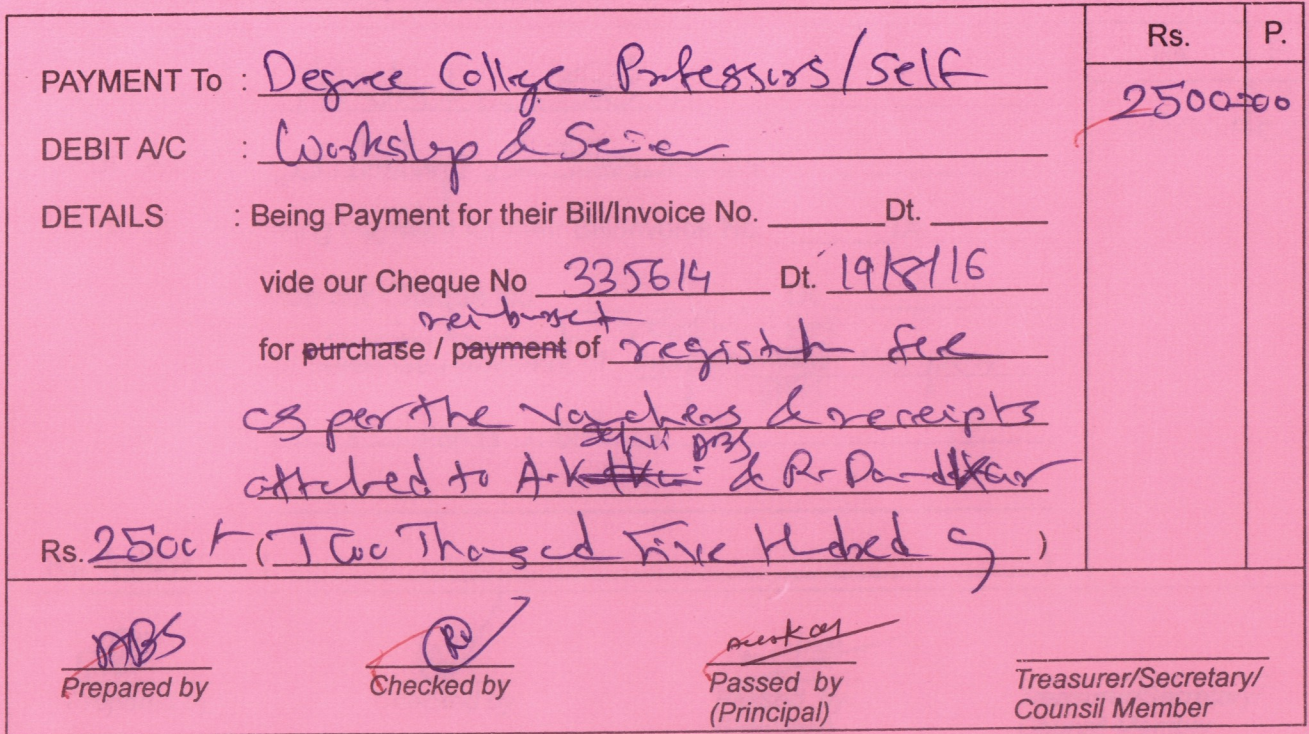 Rs. P.
PAYMENT To : Degree College Professors/Self 2500=00
DEBIT A/C : Workshop &
DETAILS : Being Payment for their Bill/Invoice No. Dt.
vide our Cheque No 335614 Dt. 19/8/16
for purchase / payment of registn fee
as per the vouchers & receipts
ABS
attached to A.K & R. Dandkar
Rs. 2500/- (Two Thousand Five Hundred )
ABS
Prepared by Checked by Passed by Treasurer/Secretary/
(Principal) Counsil Member